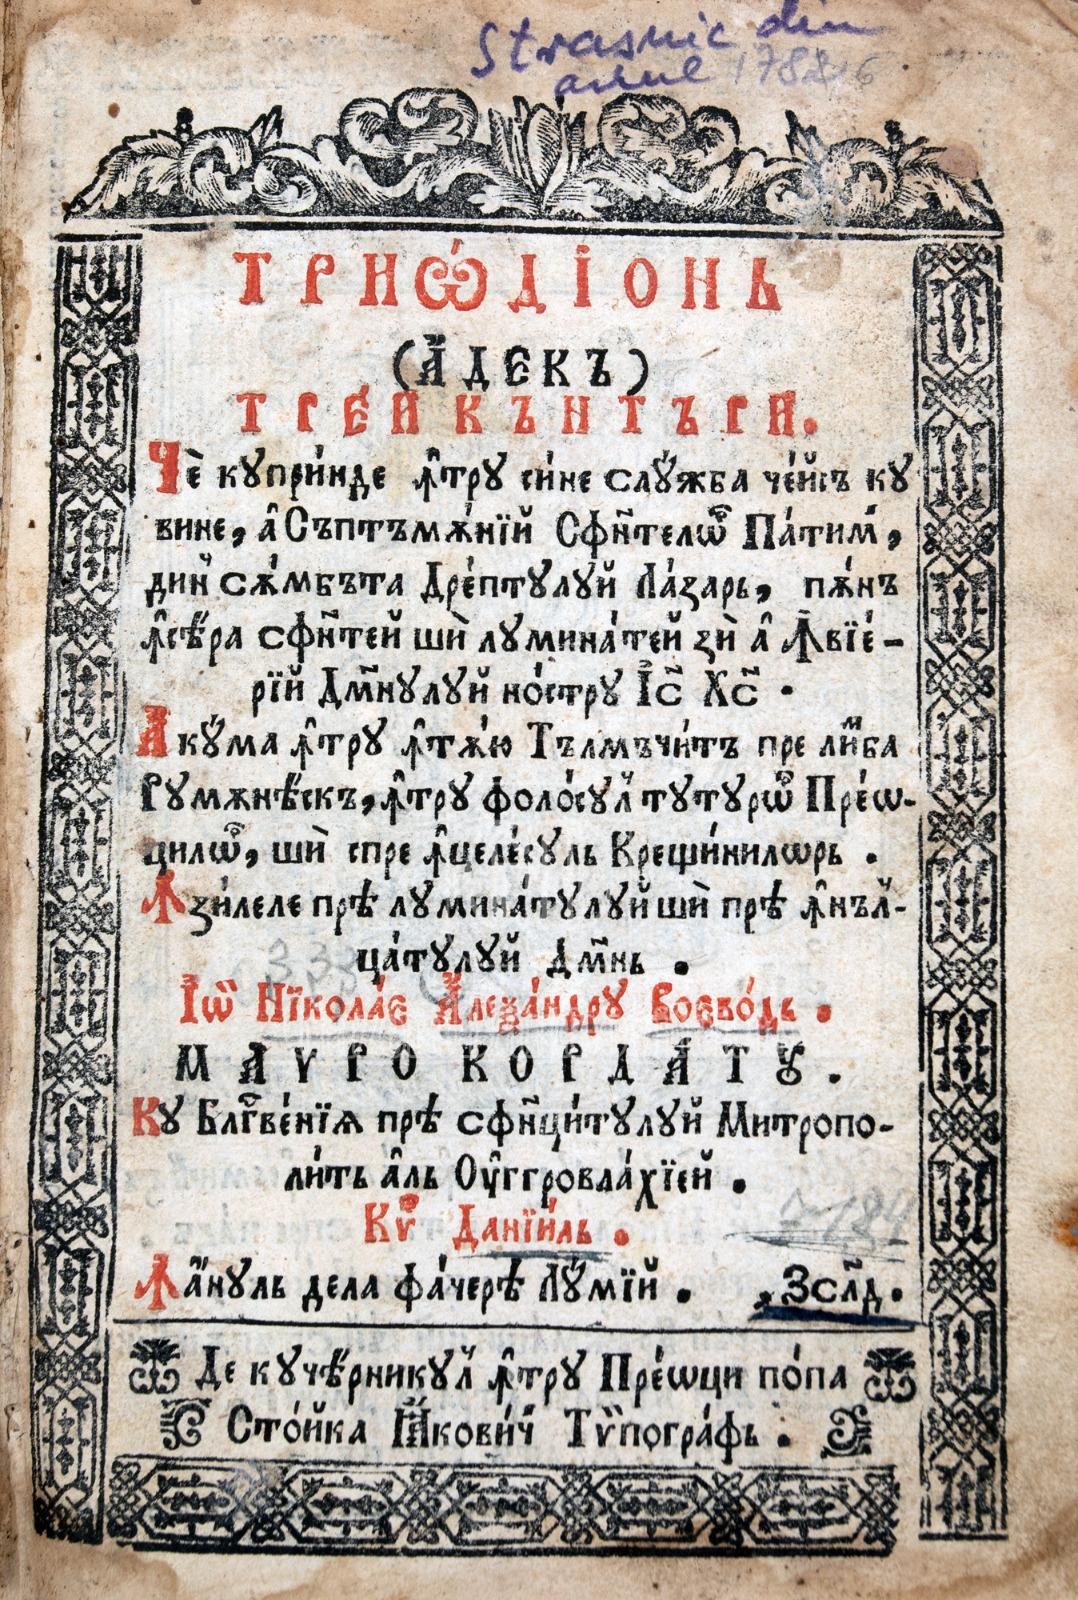 Strasnic din
anul 1788 16
ТРИѠ́ДІОНЬ
(А҆ДЕКЪ)
ТРЕЙ КЪНТЪРЙ.
Чѐ кꙋпри́нде ꙟтрꙋ си́не слꙋ́жба че́йсъ кꙋ
вине, а҆ Съптъмѫ́нїй Сфн҃телѡⷬ Па́тимⷤ,
дин сѫ́мбъта Дре́птꙋлꙋй Ла́зарь, пѫ́нъ
ꙟсѣ́ра сфн҃тей шѝ лꙋмина́тей зѝ а҆ ꙟвїе́-
рїй Дм҃нꙋлꙋй но́стрꙋ І҆с҃ Хс҃.
Акꙋ́ма ꙟтрꙋ ꙟтѫ́ю Тълмъчи́тъ пре ли́ⷨба
Рꙋмѫнѣ́скъ, ꙟтрꙋ фоло́сꙋл тꙋтꙋрѡⷬ Пре́ѡ-
цилѡⷬ, шѝ спре ꙟцеле́сꙋль Крещи́нилѡрь.
Ꙟзи́леле прѣ лꙋмина́тꙋлꙋй шѝ прѣ ꙟнъл-
ца́тꙋлꙋй Дм҃нь.
І҆ѡⷩ Нїкола́є А҆леѯа́ндрꙋ Воєво́дь.
МАѴРОКОРДА́ТꙊ.
Кꙋ Блгⷭ҇ве́нїѧ прѣ сфн҃ци́тꙋлꙋй Митропо-
ли́ть а҆ль Оу҆ггровла́хїей.
Кѵⷬ Данїи́ль.
Ꙟ а́нꙋль дела фа́черѣ Лꙋ́мїй. ҂Зсл҃д.
Де кꙋче́рникꙋл ꙟтрꙋ Пре́ѡци по́па
Сто́йка І҆ако́вич Тѷпогра́фь: